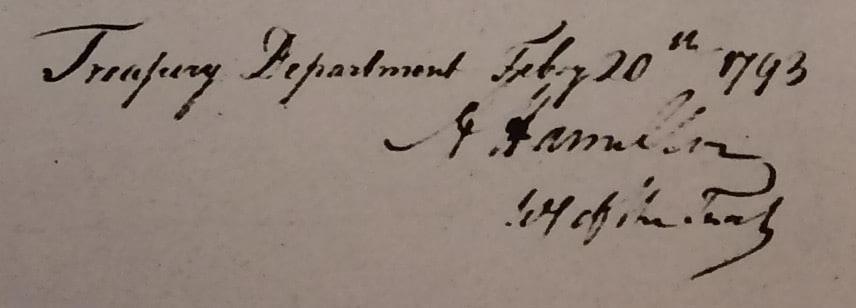 Treasury Department Feby 20th 1793
A Hamilton
Secy of the Treasy